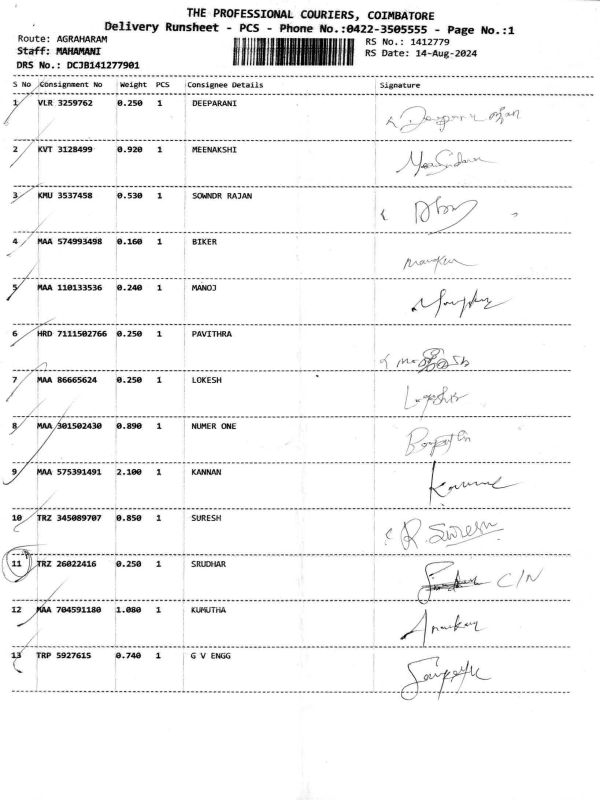 THE PROFESSIONAL COURIERS, COIMBATORE
Delivery Runsheet - PCS - Phone No.:0422-3505555 - Page No.:1
Route: AGRAHARAM RS No.: 1412779
Staff: MAHAMANI RS Date: 14-Aug-2024
DRS No.: DCJB141277901
S No Consignment No Weight PCS Consignee Details Signature
1 VLR 3259762 0.250 1 DEEPARANI
2 KVT 3128499 0.920 1 MEENAKSHI
3 KMU 3537458 0.530 1 SOWNDR RAJAN
4 MAA 574993498 0.160 1 BIKER
5 MAA 110133536 0.240 1 MANOJ
6 HRD 7111502766 0.250 1 PAVITHRA
7 MAA 86665624 0.250 1 LOKESH
8 MAA 301502430 0.890 1 NUMER ONE
9 MAA 575391491 2.100 1 KANNAN
10 TRZ 345089707 0.850 1 SURESH R. Suresh
11 TRZ 26022416 0.250 1 SRUDHAR C/N
12 MAA 704591180 1.080 1 KUMUTHA
13 TRP 5927615 0.740 1 G V ENGG